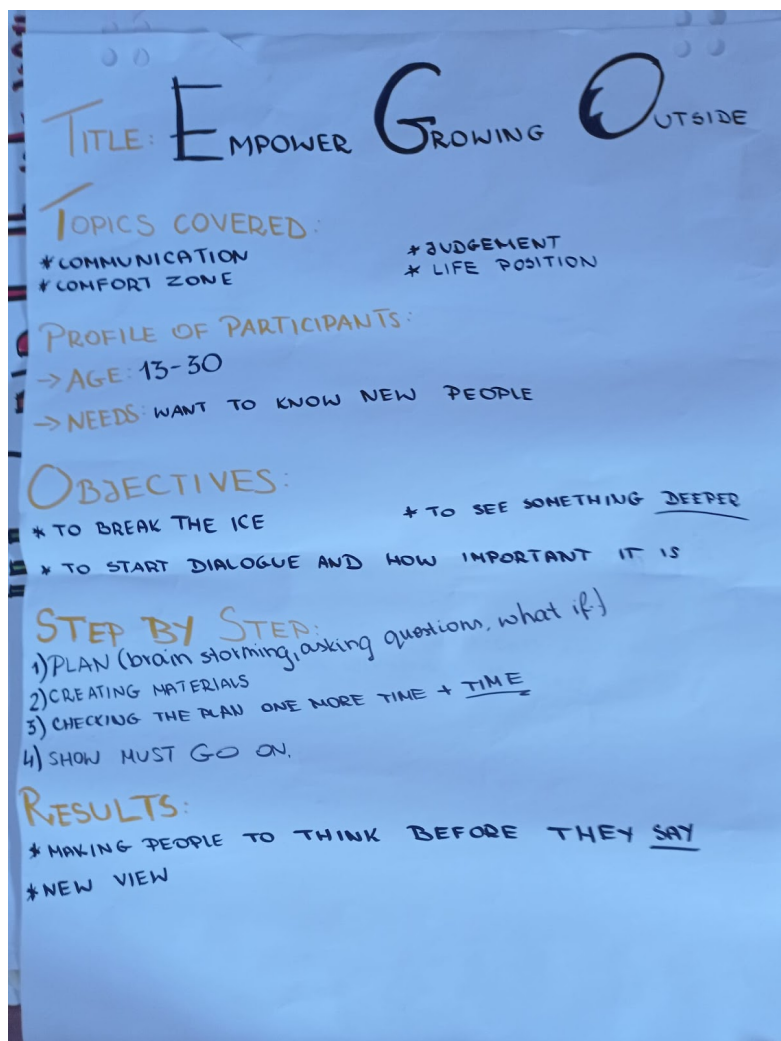 TITLE: EMPOWER GROWING OUTSIDE
TOPICS COVERED:
*COMMUNICATION
*COMFORT ZONE
*JUDGEMENT
* LIFE POSITION
PROFILE OF PARTICIPANTS:
→ AGE: 13-30
→ NEEDS: WANT TO KNOW NEW PEOPLE
OBJECTIVES:
* TO BREAK THE ICE
* TO SEE SOMETHING DEEPER
* TO START DIALOGUE AND HOW IMPORTANT IT IS
STEP BY STEP:
1) PLAN (brain storming, asking questions, what if)
2) CREATING MATERIALS
3) CHECKING THE PLAN ONE MORE TIME + TIME
4) SHOW MUST GO ON.
RESULTS:
* MAKING PEOPLE TO THINK BEFORE THEY SAY
*NEW VIEW